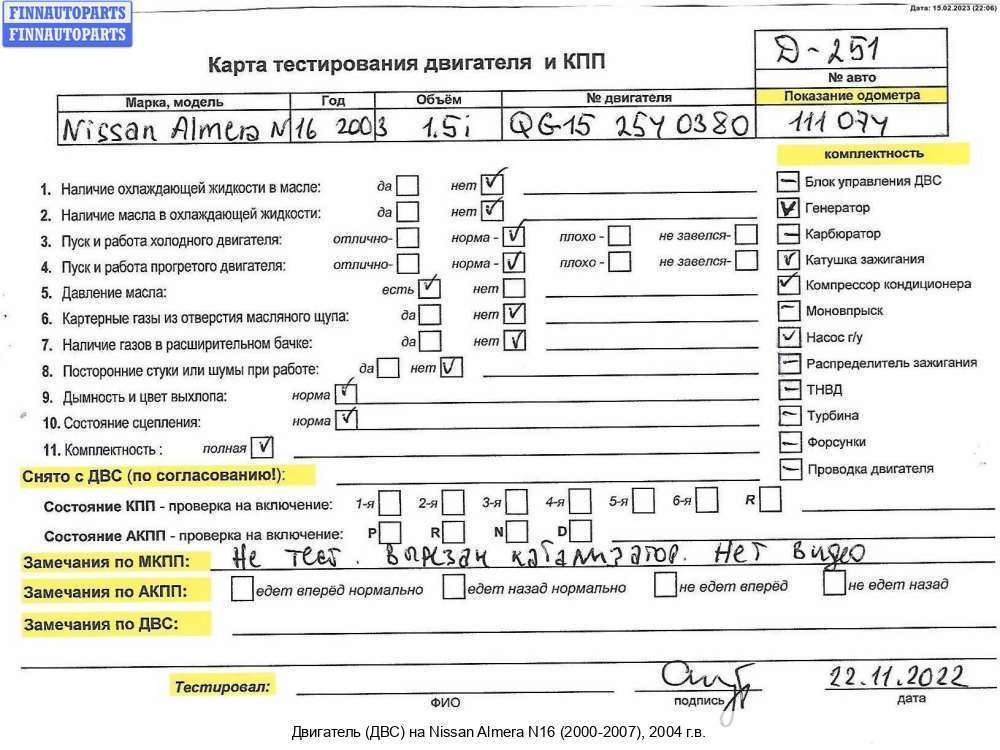 FINNAUTOPARTS
FINNAUTOPARTS
Дата: 15.02.2023 (22:06)
Карта тестирования двигателя и КПП
Д-251
№ авто
Марка, модель Год Объём № двигателя Показание одометра
Nissan Almera N16 2003 1.5i QG15 2540380 111 074
комплектность
1. Наличие охлаждающей жидкости в масле: да нет
2. Наличие масла в охлаждающей жидкости: да нет
3. Пуск и работа холодного двигателя: отлично- норма - плохо - не завелся-
4. Пуск и работа прогретого двигателя: отлично- норма - плохо - не завелся-
5. Давление масла: есть нет
6. Картерные газы из отверстия масляного щупа: да нет
7. Наличие газов в расширительном бачке: да нет
8. Посторонние стуки или шумы при работе: да нет
9. Дымность и цвет выхлопа: норма
10. Состояние сцепления: норма
11. Комплектность : полная
Блок управления ДВС
Генератор
Карбюратор
Катушка зажигания
Компрессор кондиционера
Моновпрыск
Насос г/у
Распределитель зажигания
ТНВД
Турбина
Форсунки
Проводка двигателя
Снято с ДВС (по согласованию!):
Состояние КПП - проверка на включение: 1-я 2-я 3-я 4-я 5-я 6-я R
Состояние АКПП - проверка на включение: P R N D
Замечания по МКПП: Не тест. Вырезан катализатор. Нет видео
Замечания по АКПП: едет вперёд нормально едет назад нормально не едет вперёд не едет назад
Замечания по ДВС:
Тестировал: 22.11.2022
ФИО подпись дата
Двигатель (ДВС) на Nissan Almera N16 (2000-2007), 2004 г.в.